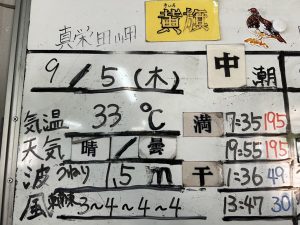 真栄田岬 黄旗
9/5(木) 中潮
気温 33℃ 満 7:35 195
天気 晴/曇 19:55 195
波 うねり 1.5m 干 1:36 49
風 3~4~4~4 13:47 30